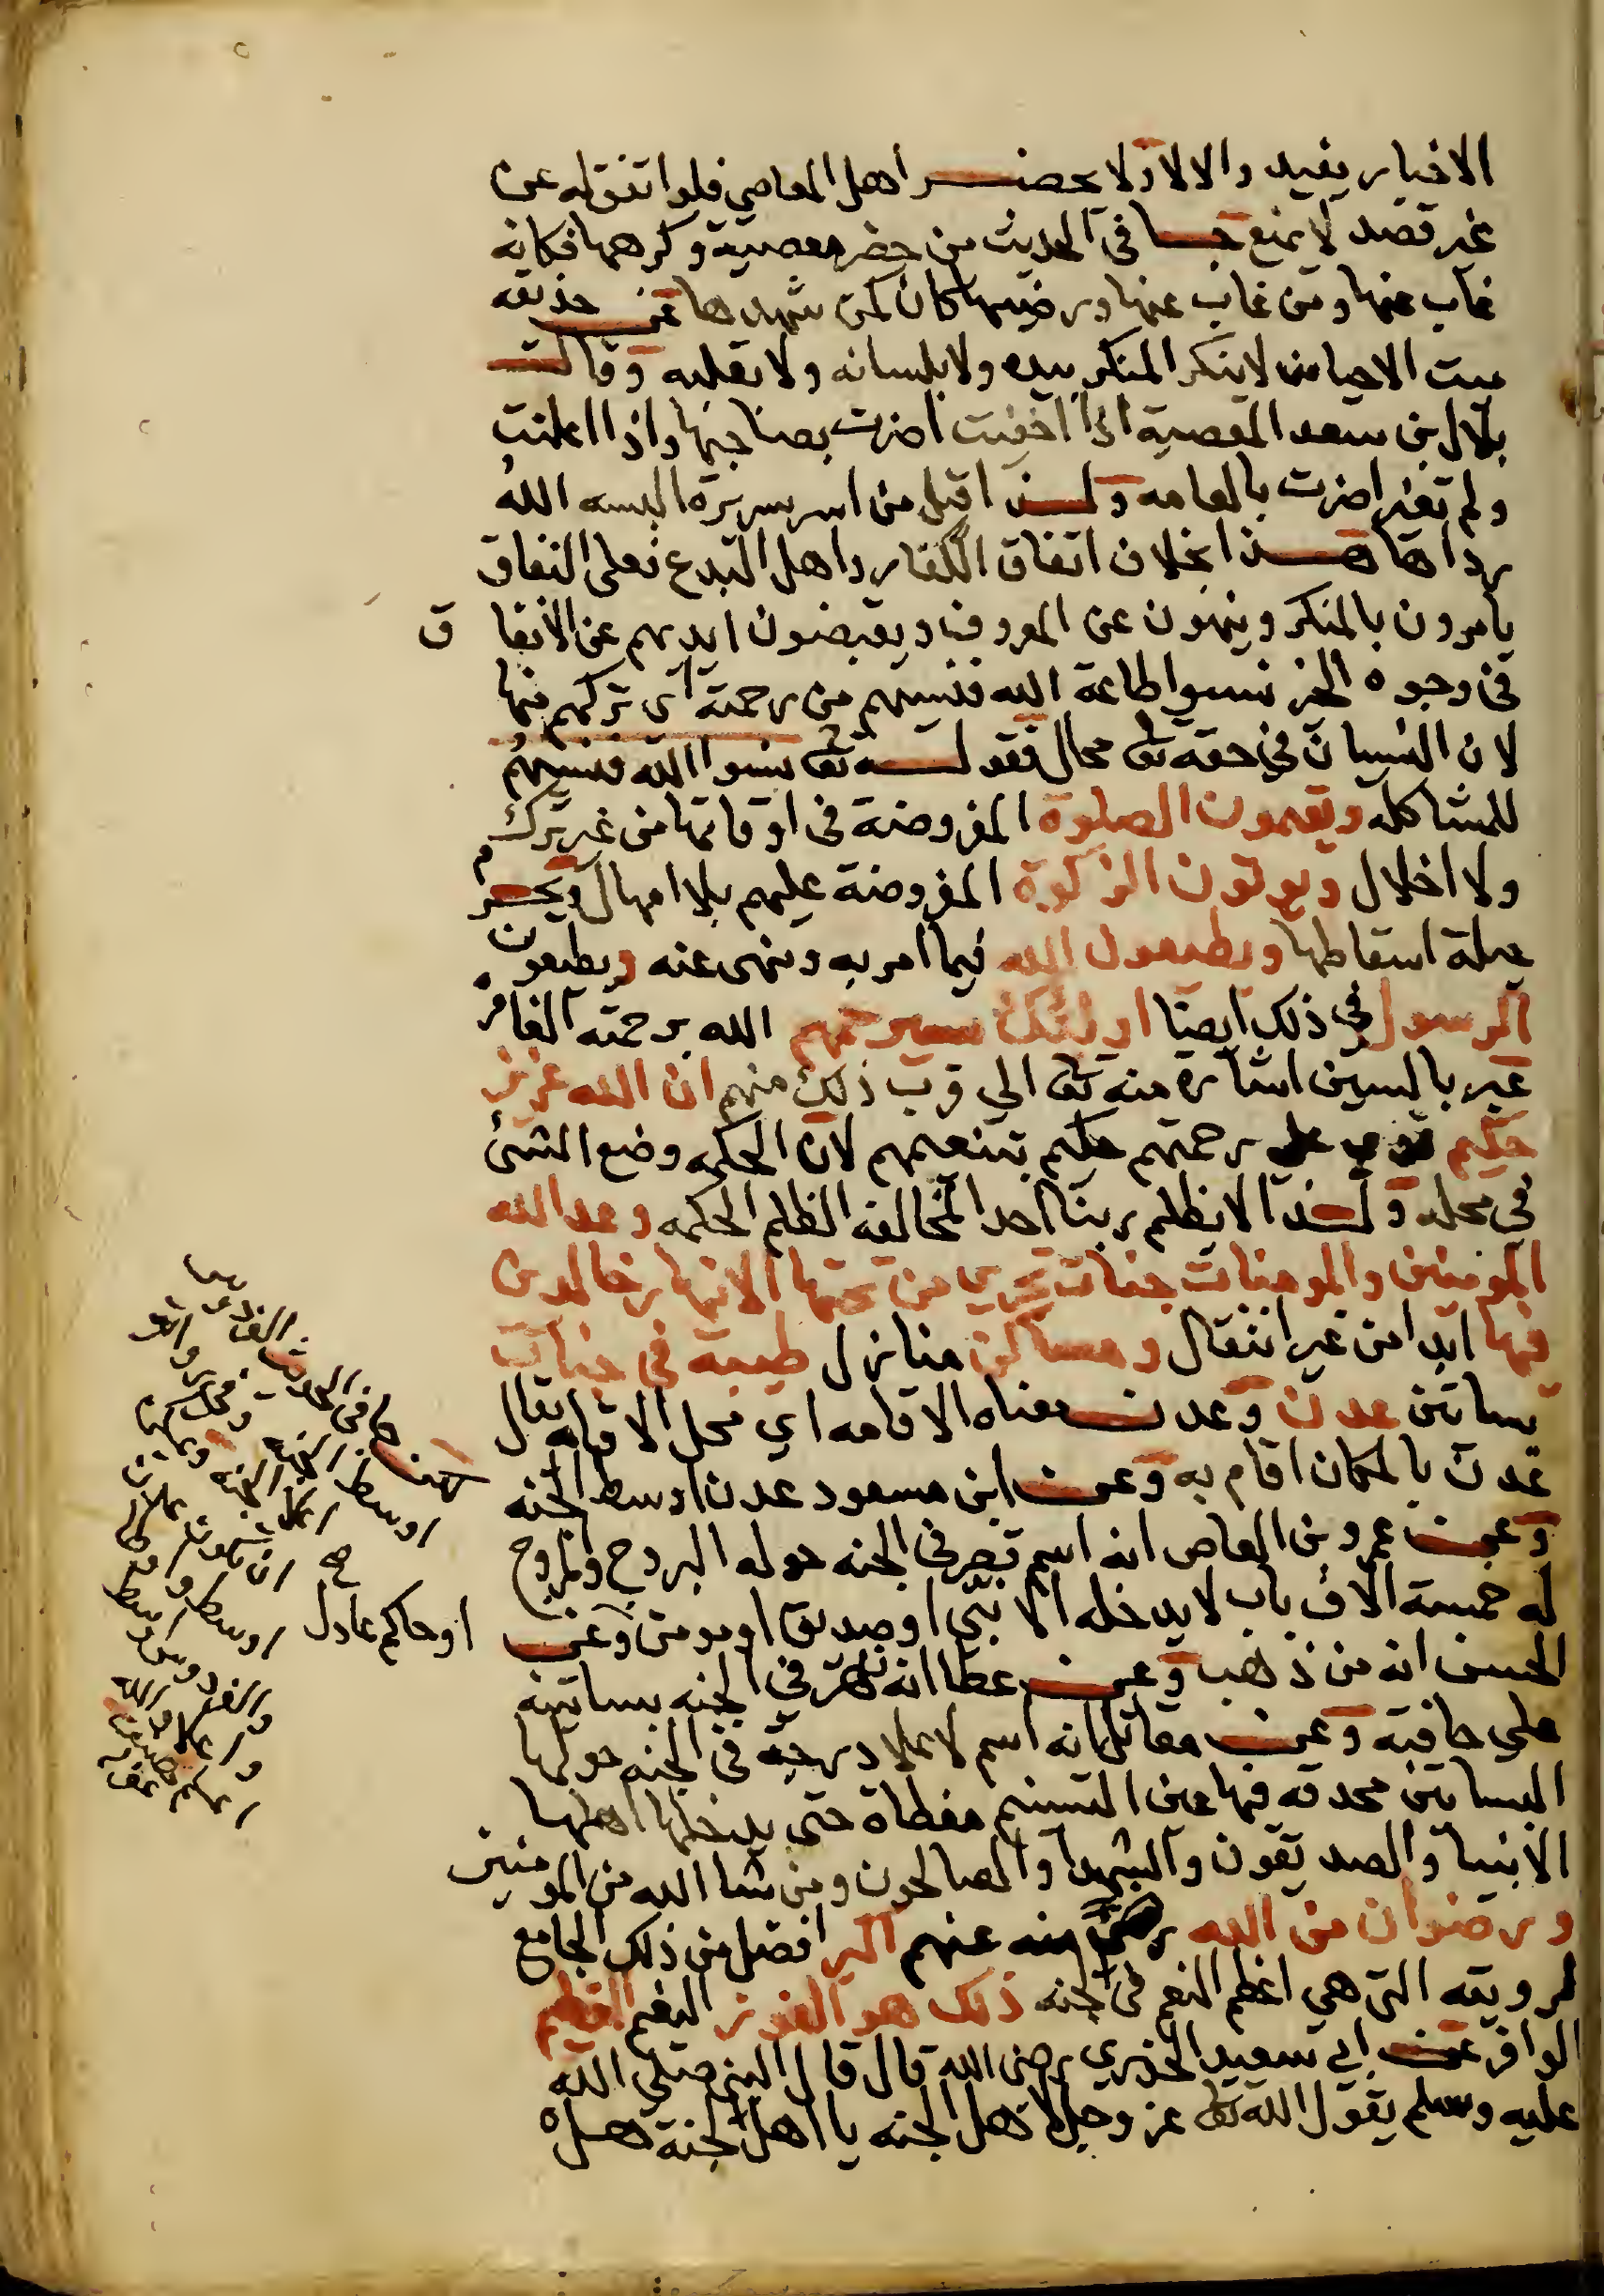 الاخبار يفيد والا لاولا يحضر اهل المعاصي فلو اتفق له عن
غير قصد لا يمنع جا في الحديث من حضر معصية وكرهها فكانه
غاب عنها ومن غاب عنها ورضيها كان كمن شهدها عن حذيفه
ميت الاحيا من لا ينكر المنكر بيده ولا بلسانه ولا بقلبه وقال
بلال بن سعد المعصية اذا اخفيت اضرت بصاحبها واذا اعلنت
ولم تغير اضرت بالعامه ولذا قيل من اسر سريرة البسه الله
رداها هذا بخلاف اتفاق الكفار واهل البدع فعلى النفاق
يامرون بالمنكر وينهون عن المعروف ويقبضون ايديهم عن الانفاق
في وجوه الخير نسوا طاعة الله فنسيهم من رحمته اي تركهم منها
لان النسيان في حقه تعالى محال فقوله تعالى نسوا الله فنسيهم
للمشاكله ويقيمون الصلوة المفروضة في اوقاتها من غير ترك
ولا اخلال ويوتون الزكوة المفروضة عليهم بلا امهال ويحرم
حيلة اسقاطها ويطيعون الله فيما امر به ونهى عنه ويطيعون
الرسول في ذلك ايضا اولئك سيرحمهم الله برحمته الغامره
عبر بالسين اشارة منه تعالى الى قرب ذلك منهم ان الله عزيز
حكيم قوي على رحمتهم حكيم بتنعمهم لان الحكمه وضع الشئ
في محله ولذا لا يظلم ربنا احدا لمخالفه الظلم الحكمه وعد الله
المومنين والمومنات جنات تجري من تحتها الانهار خالدين
فيها ابدا من غير انتقال ومساكن منازل طيبة في جنات
بساتين عدن وعدن معناه الاقامه اي محل الاقامه يقال
عدن بالمكان اقام به وعن ابن مسعود عدن اوسط الجنه
وعن عمرو بن العاص انه اسم قصر في الجنه حوله البروج والمروج
له خمسة الاف باب لا يدخله الا نبي او صديق او مومن وعن
او حاكم عادل
الحسن انه من ذهب وعن عطا انه نهر في الجنه بساتينه
على حافيه وعن مقاتل انه اسم لاعلا درجة في الجنه حولها
البساتين محدقه فيها عين التسنيم مغطاة حتى يدخلها اهلها
الانبيا والصديقون والشهدا والصالحون ومن شا الله من المومنين
ورضوان من الله رضي منه عنهم اكبر افضل من ذلك الجامع
لرويته التي هي اعظم النعم في الجنه ذلك هو الفوز النعيم العظيم
الوافر عن ابي سعيد الخذري رضى الله قال قال النبي صلى الله
عليه وسلم يقول الله تعالى عز وجل لاهل الجنه يا اهل الجنة هل
كما في الحديث الفردوس
اوسط الجنه
اعلا الجنه
ان تكون
اوسط
والفردوس اوسط
واعلا والله
اعلم